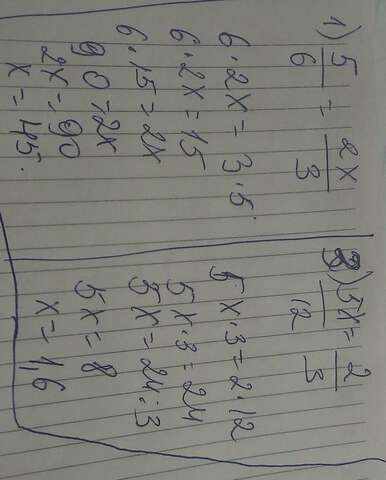 1) 5/6 = 2x/3
6·2x = 3·5.
6·2x = 15
6·15 = 2x
90 = 2x
2x = 90
x = 45.
3) 5x/12 = 2/3
5x·3 = 2·12
5x·3 = 24
5x = 24:3
5x = 8
x = 1,6